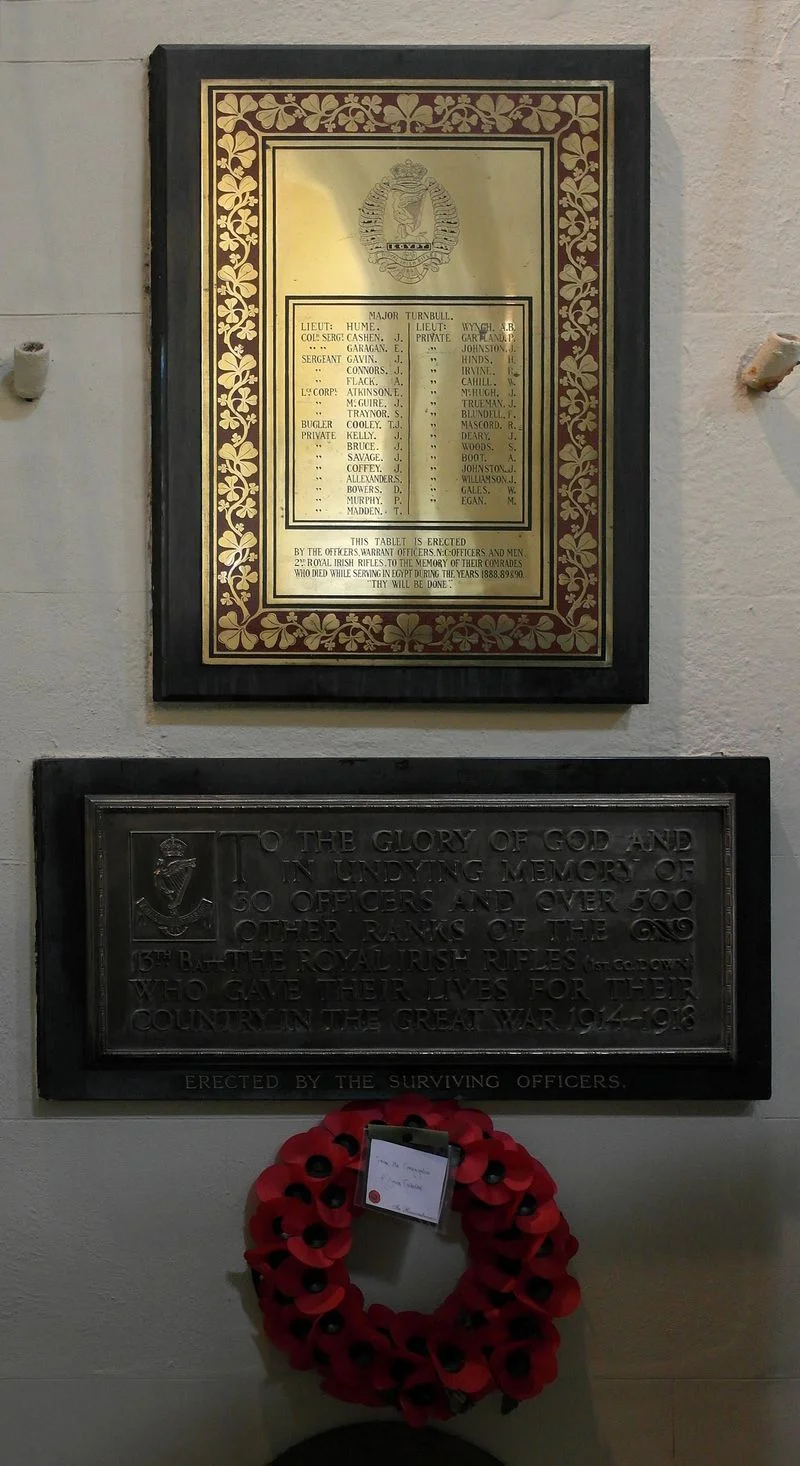 EGYPT
MAJOR TURNBULL.
LIEUT: HUME. LIEUT: WYNCH, A.B.
COLR SERGT CASHEN. J. PRIVATE GARTLAND. P.
" " GARAGAN. E. " JOHNSTON. J.
SERGEANT GAVIN. J. " HINDS. H.
" CONNORS. J. " IRVINE.
" FLACK. A. " CAHILL. W.
LCE CORPL ATKINSON. E. " McHUGH. J.
" McGUIRE. J. " TRUEMAN. J.
" TRAYNOR. S. " BLUNDELL. F.
BUGLER COOLEY. T.J. " MASCORD. R.
PRIVATE KELLY. J. " DEARY. J.
" BRUCE. J. " WOODS. S.
" SAVAGE. J. " BOOT. A.
" COFFEY. J. " JOHNSTON. J.
" ALLEXANDER. S. " WILLIAMSON. J.
" BOWERS. D. " GALES. W.
" MURPHY. P. " EGAN. M.
" MADDEN. T.
THIS TABLET IS ERECTED
BY THE OFFICERS, WARRANT OFFICERS, N:C:OFFICERS AND MEN.
2ND ROYAL IRISH RIFLES. TO THE MEMORY OF THEIR COMRADES
WHO DIED WHILE SERVING IN EGYPT DURING THE YEARS 1888.89&90.
"THY WILL BE DONE".
TO THE GLORY OF GOD AND
IN UNDYING MEMORY OF
30 OFFICERS AND OVER 500
OTHER RANKS OF THE
13TH BATT THE ROYAL IRISH RIFLES (1ST CO. DOWN)
WHO GAVE THEIR LIVES FOR THEIR
COUNTRY IN THE GREAT WAR 1914-1918
ERECTED BY THE SURVIVING OFFICERS.